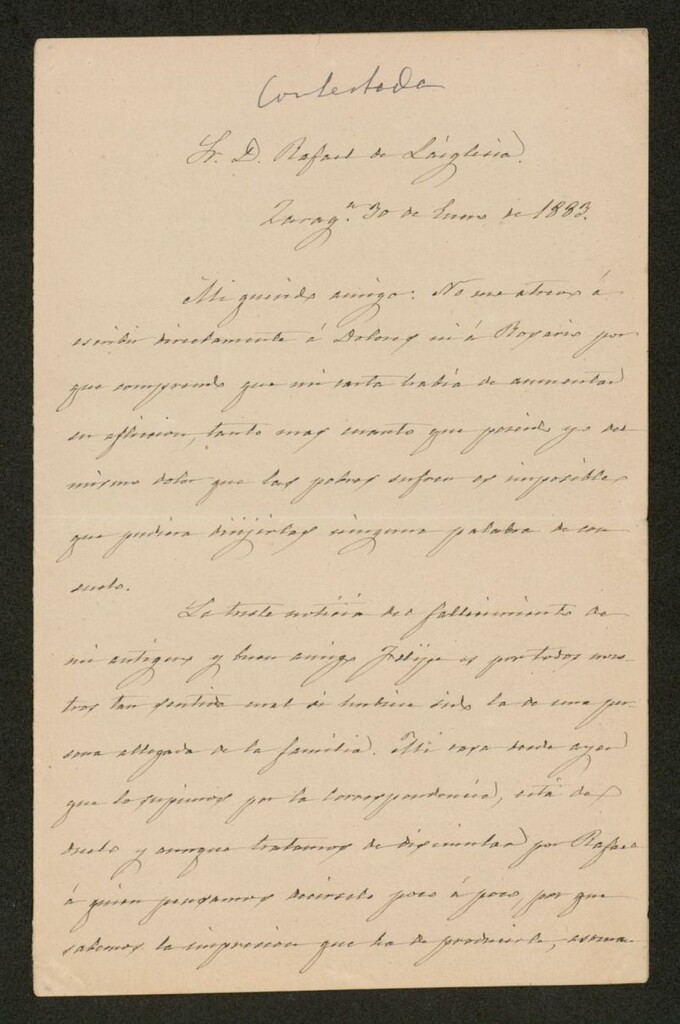 Contestada
Sr. D. Rafael de Laiglesia.
Zarag.ª 30 de Enero de 1883.
Mi querido amigo: No me atrevo á
escribir directamente á Dolores ni á Rosario por
que comprendo que mi carta había de aumentar
su aflicion, tanto mas cuanto que poseido yo del
mismo dolor que las pobres sufren es imposible
que pudiera dirijirlas ninguna palabra de con
suelo.
La triste noticia del fallecimiento de
mi antiguo y buen amigo Felipe es por todos noso-
tros tan sentida cual si hubiera sido la de una per-
sona allegada de la familia. Mi casa desde ayer
que lo supimos por la Correspondencia, está de
duelo y aunque tratamos de disimular por Rafael
á quien pensamos decirselo poco á poco, por que
sabemos la impresion que ha de producirle,